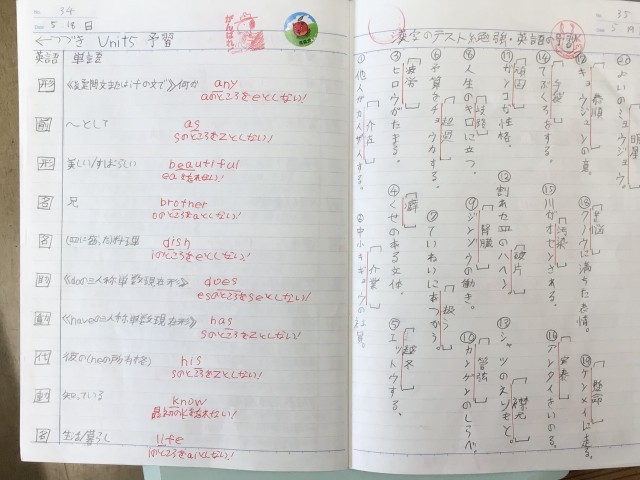 34
5 18 日
←つづき Unit5 予習
がんばれ
英語 単語
形 《疑問文または(十の文で)》何か any
aのところをeとしない!
~として as
sのところをzとしない!
形 美しい/すばらしい beautiful
eaを忘れない!
名 兄 brother
oのところをaとしない!
名 dish
iのところをeとしない!
《doの三人称単数現在形》 does
esのところをseとしない!
《haveの三人称単数現在形》 has
sのところをzとしない!
代 彼の(heの所有格) his
sのところをzとしない!
動 知っている know
最初のkを忘れない!
名 生活/暮らし life
35
5
漢字のテスト勉強・英語の予習
① 個人がカイザイする。 介在
② 中小キギョウの社員。 企業
③ ヒロウがたまる。 疲労
④ くせのある文体。 癖
⑤ エットウする。 越冬
⑥ 予算をチョウカする。 超過
⑦ ていねいにあつかう。 扱う
⑧ 人生のキロに立つ。 岐路
⑨ ジンゾウの働き。 腎臓
⑩ カンゲンのしらべ。 管弦
⑪ ガンコな性格。 頑固
⑫ 割れた皿のハヘン 破片
⑬ シャツのえりもと。 襟元
⑭ てぶくろをする。 手袋
⑮ 川がオセンされる。 汚染
⑯ アンタイをいのる。 安泰
⑰ キョウジュンの意。 恭順
⑱ クノウに満ちた表情。 苦悩
⑲ ケンメイに走る。 懸命
⑳ よいのミョウジョウ。 明星